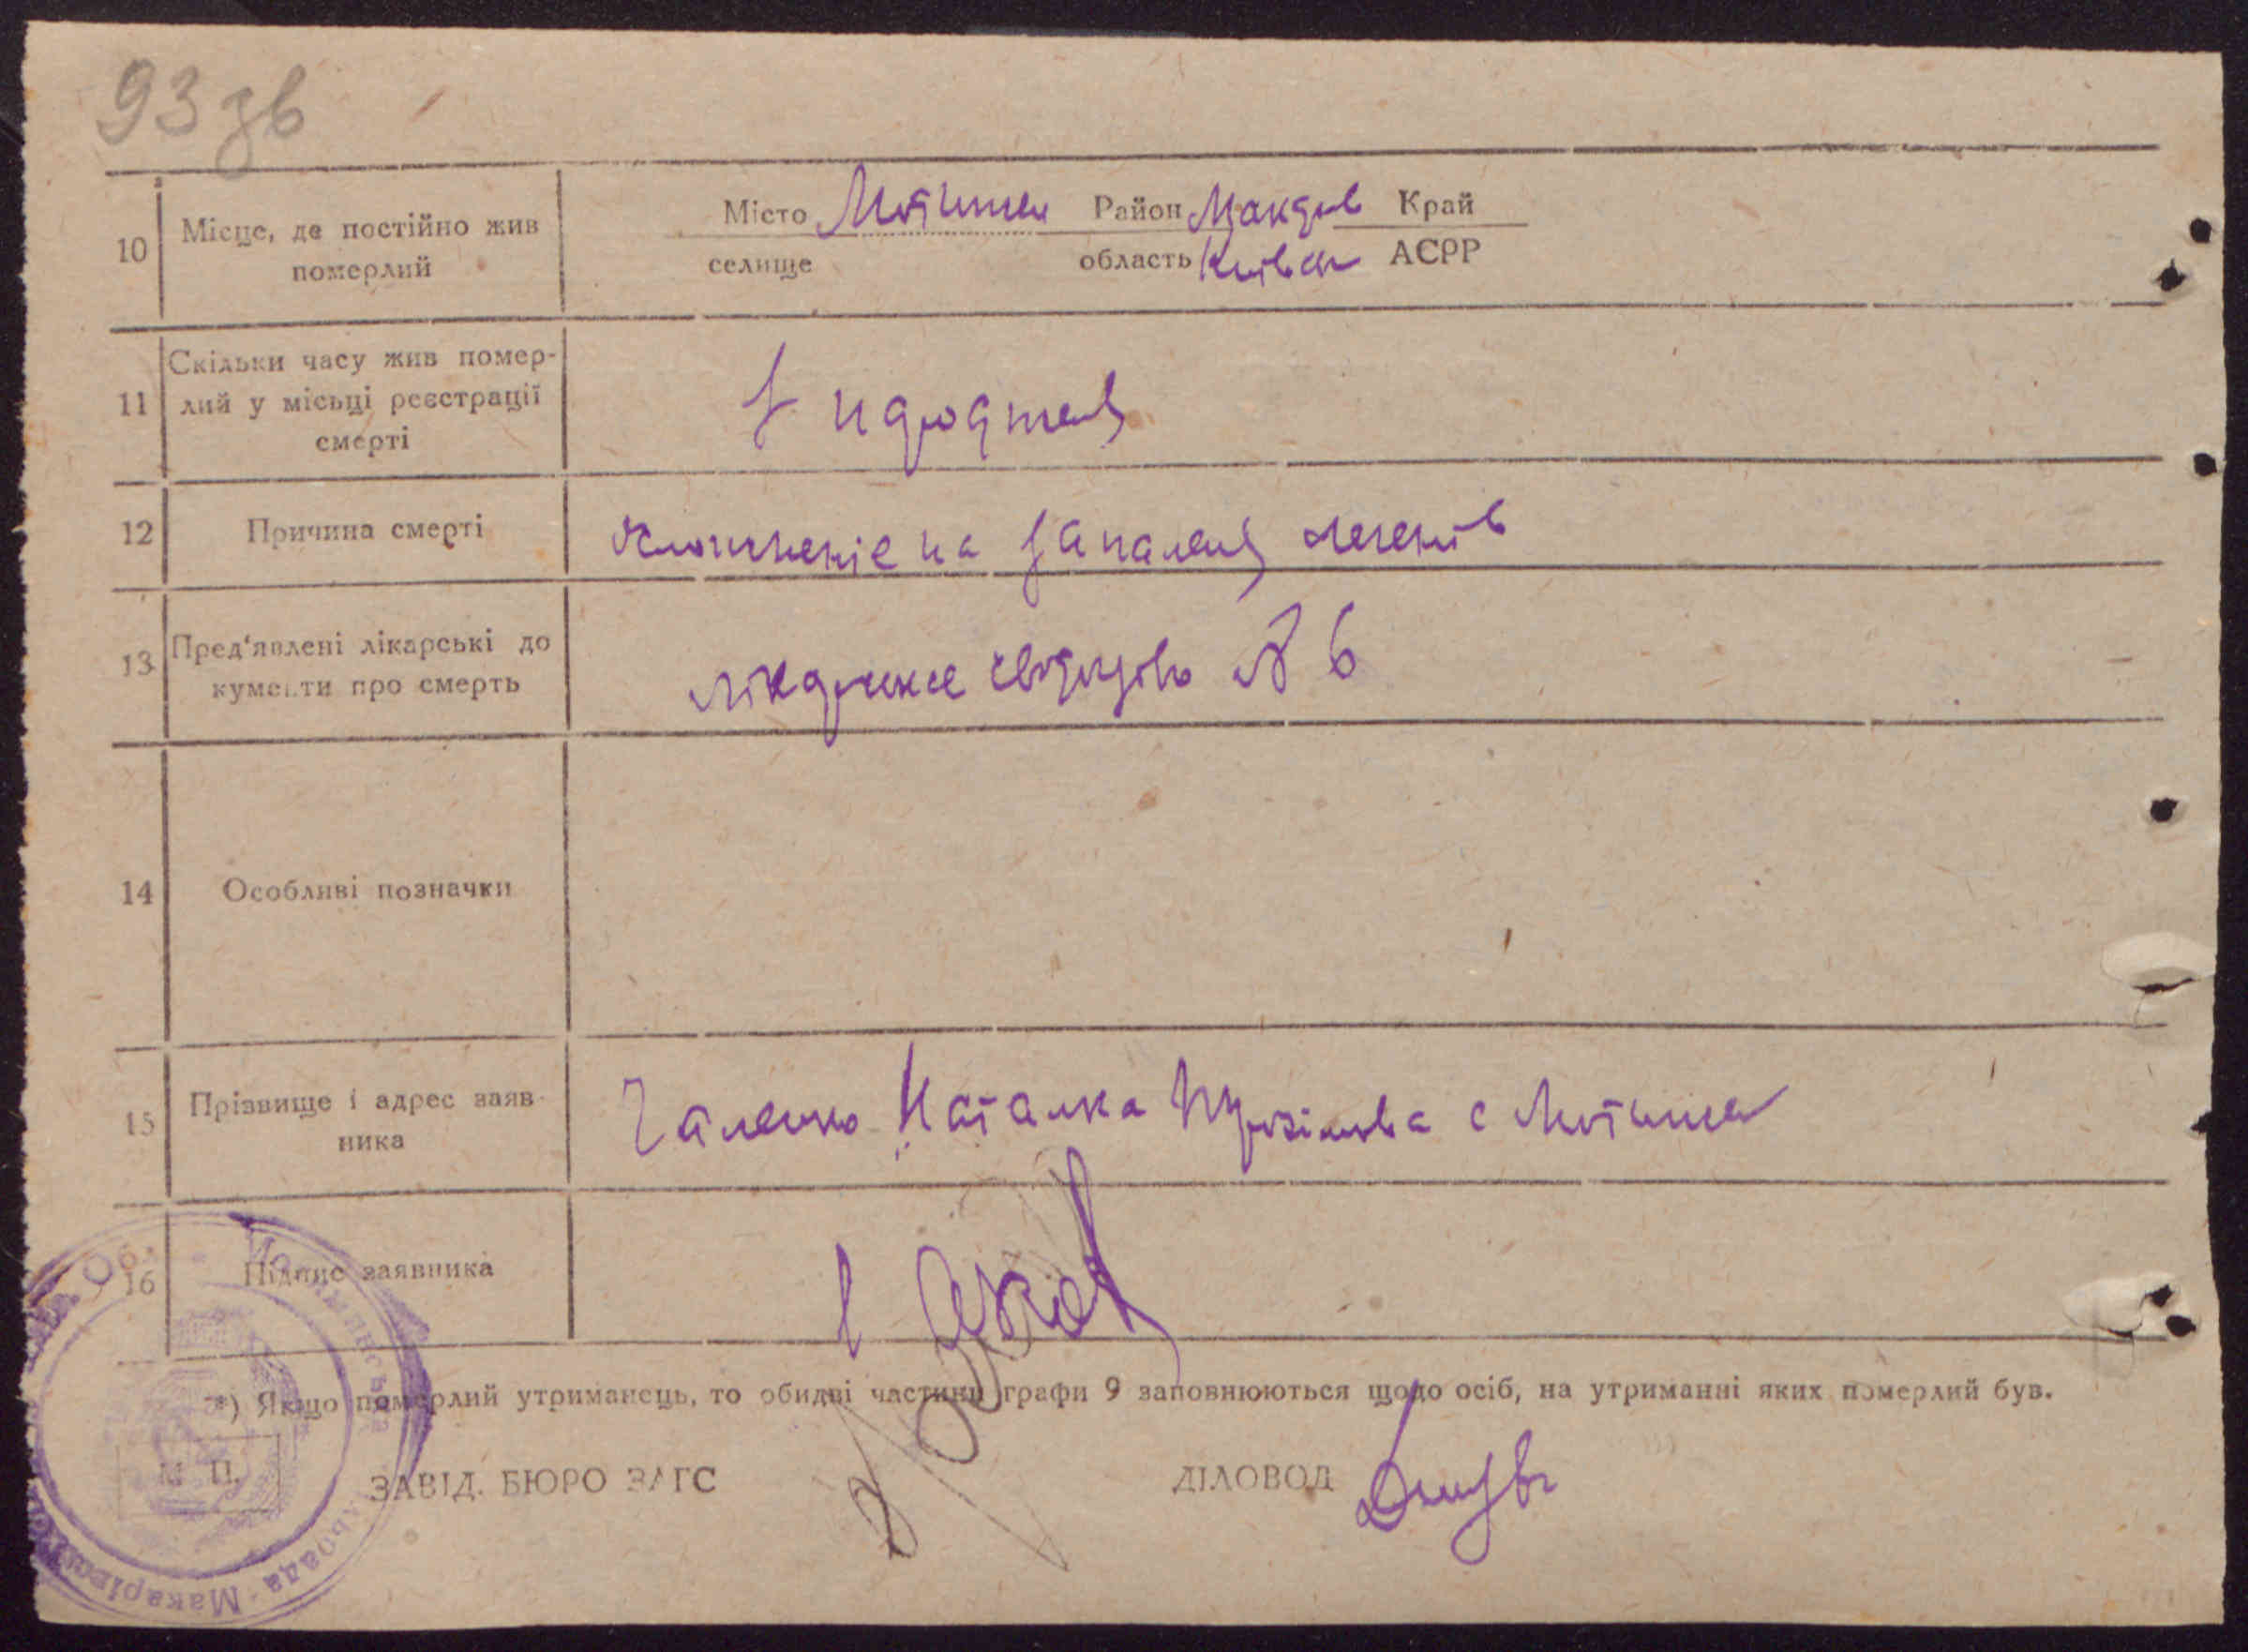 93 зв
10 Місце, де постійно жив померлий
Місто Мотижин Район Макарів Край
селище область Київськ АСРР
11 Скільки часу жив помер-
лий у місьці реєстрації
смерті
з народженя
12 Причина смерті
на запаленя легенів
13 Пред'явлені лікарські до
кументи про смерть
лікарське свідоцтво № 6
14 Особливі позначки
15 Прізвище і адрес заяв-
ника
Галенко Наталка с Мотижин
16 Підпис заявника
*) Якщо померлий утриманець, то обидві частини графи 9 заповнюються щодо осіб, на утриманні яких померлий був.
М П.
ЗАВІД. БЮРО ЗАГС
ДІЛОВОД